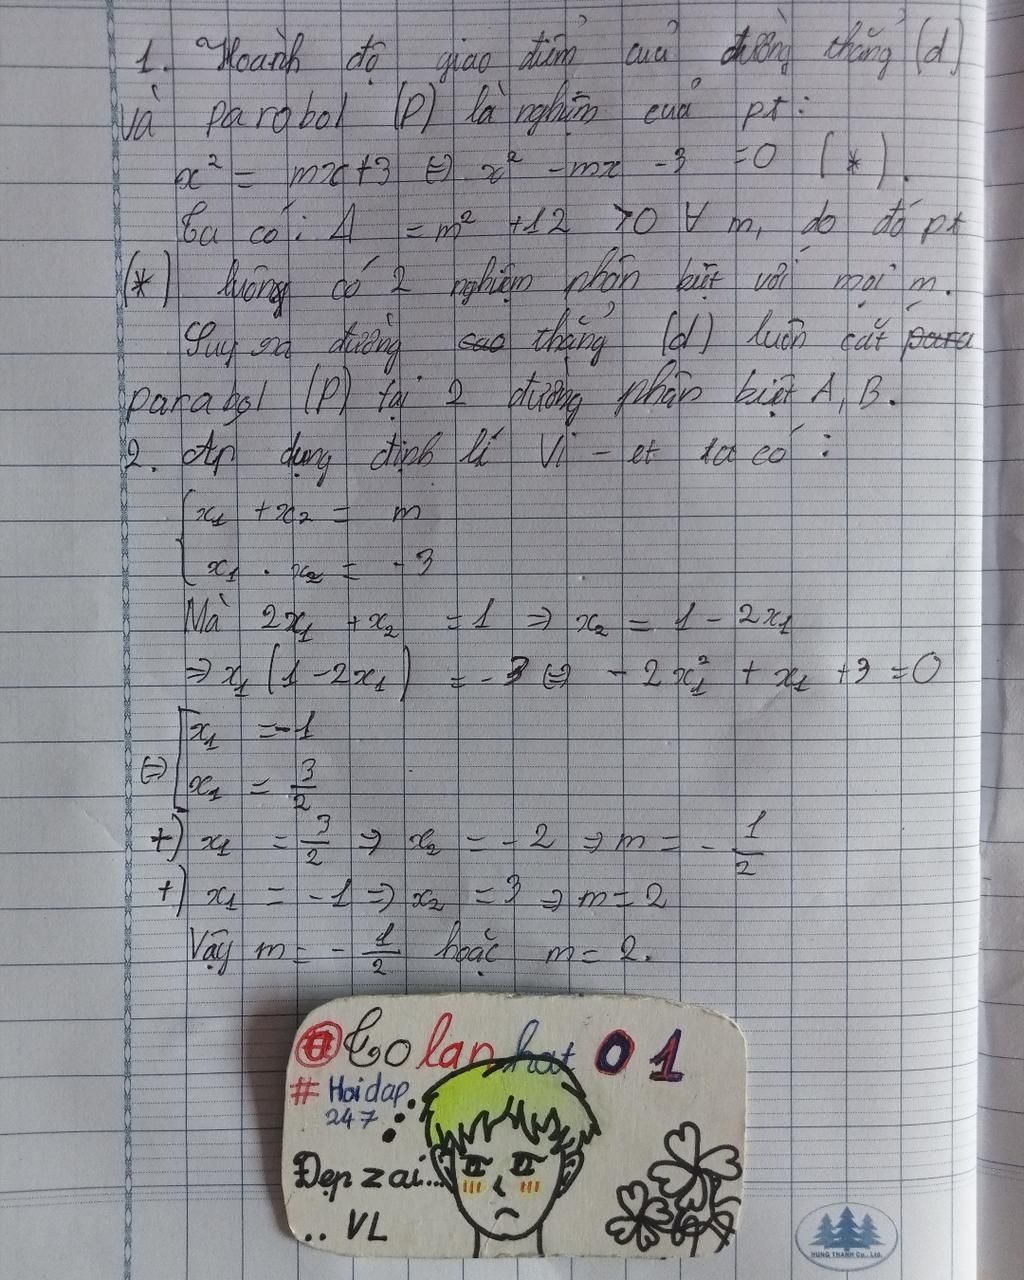 1. Hoành độ giao điểm của đường thẳng (d)
và parabol (P) là nghiệm của pt:
x² = mx+3 ⇔ x² - mx - 3 = 0 (*).
Ta có: Δ = m² + 12 > 0 ∀ m, do đó pt
(*) luông có 2 nghiệm phân biệt với mọi m.
Suy ra đường thẳng (d) luôn cắt
parabol (P) tại 2 đường phân biệt A, B.
2. Áp dụng định lí Vi-et ta có:
x₁ + x₂ = m
x₁ . x₂ = -3
Mà 2x₁ + x₂ = 1 ⇒ x₂ = 1 - 2x₁
⇒ x₁ (1 - 2x₁) = -3 ⇔ - 2x₁² + x₁ + 3 = 0
x₁ = -1
⇔
x₁ = 3/2
+) x₁ = 3/2 ⇒ x₂ = -2 ⇒ m = - 1/2
+) x₁ = -1 ⇒ x₂ = 3 ⇒ m = 2
Vậy m = - 1/2 hoặc m = 2.
# Co lan hat 01
# Hoidap
247
Đẹp zai...
.. VL
HUNG THANH Co., Ltd.